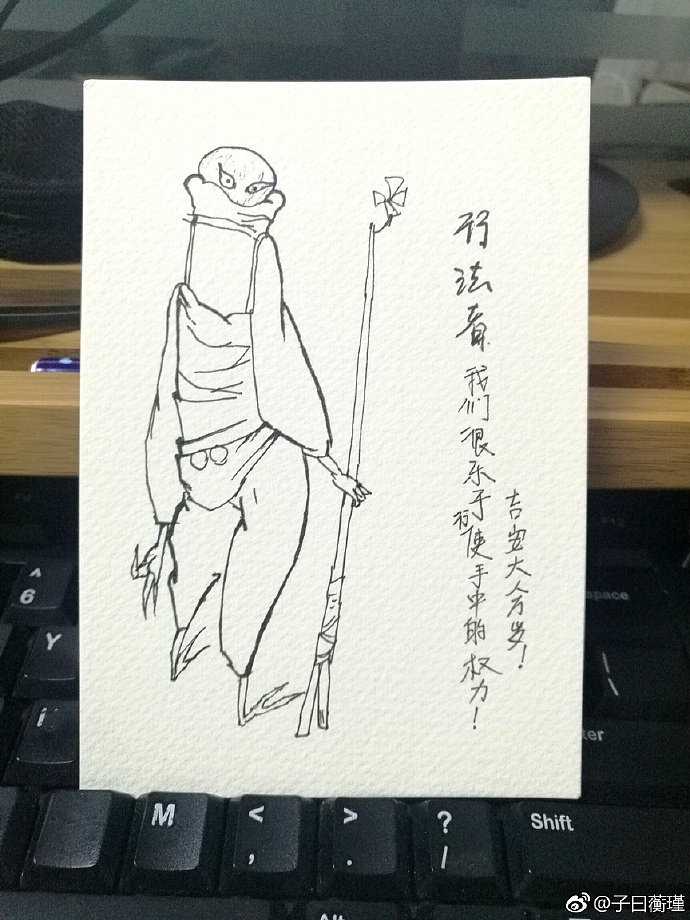 行法者
我们很乐于行使手中的权力！
吉安大人万岁！
^
6
Y
M
<
,
>
.
?
/
Shift
Alt
@子曰蘅瑾